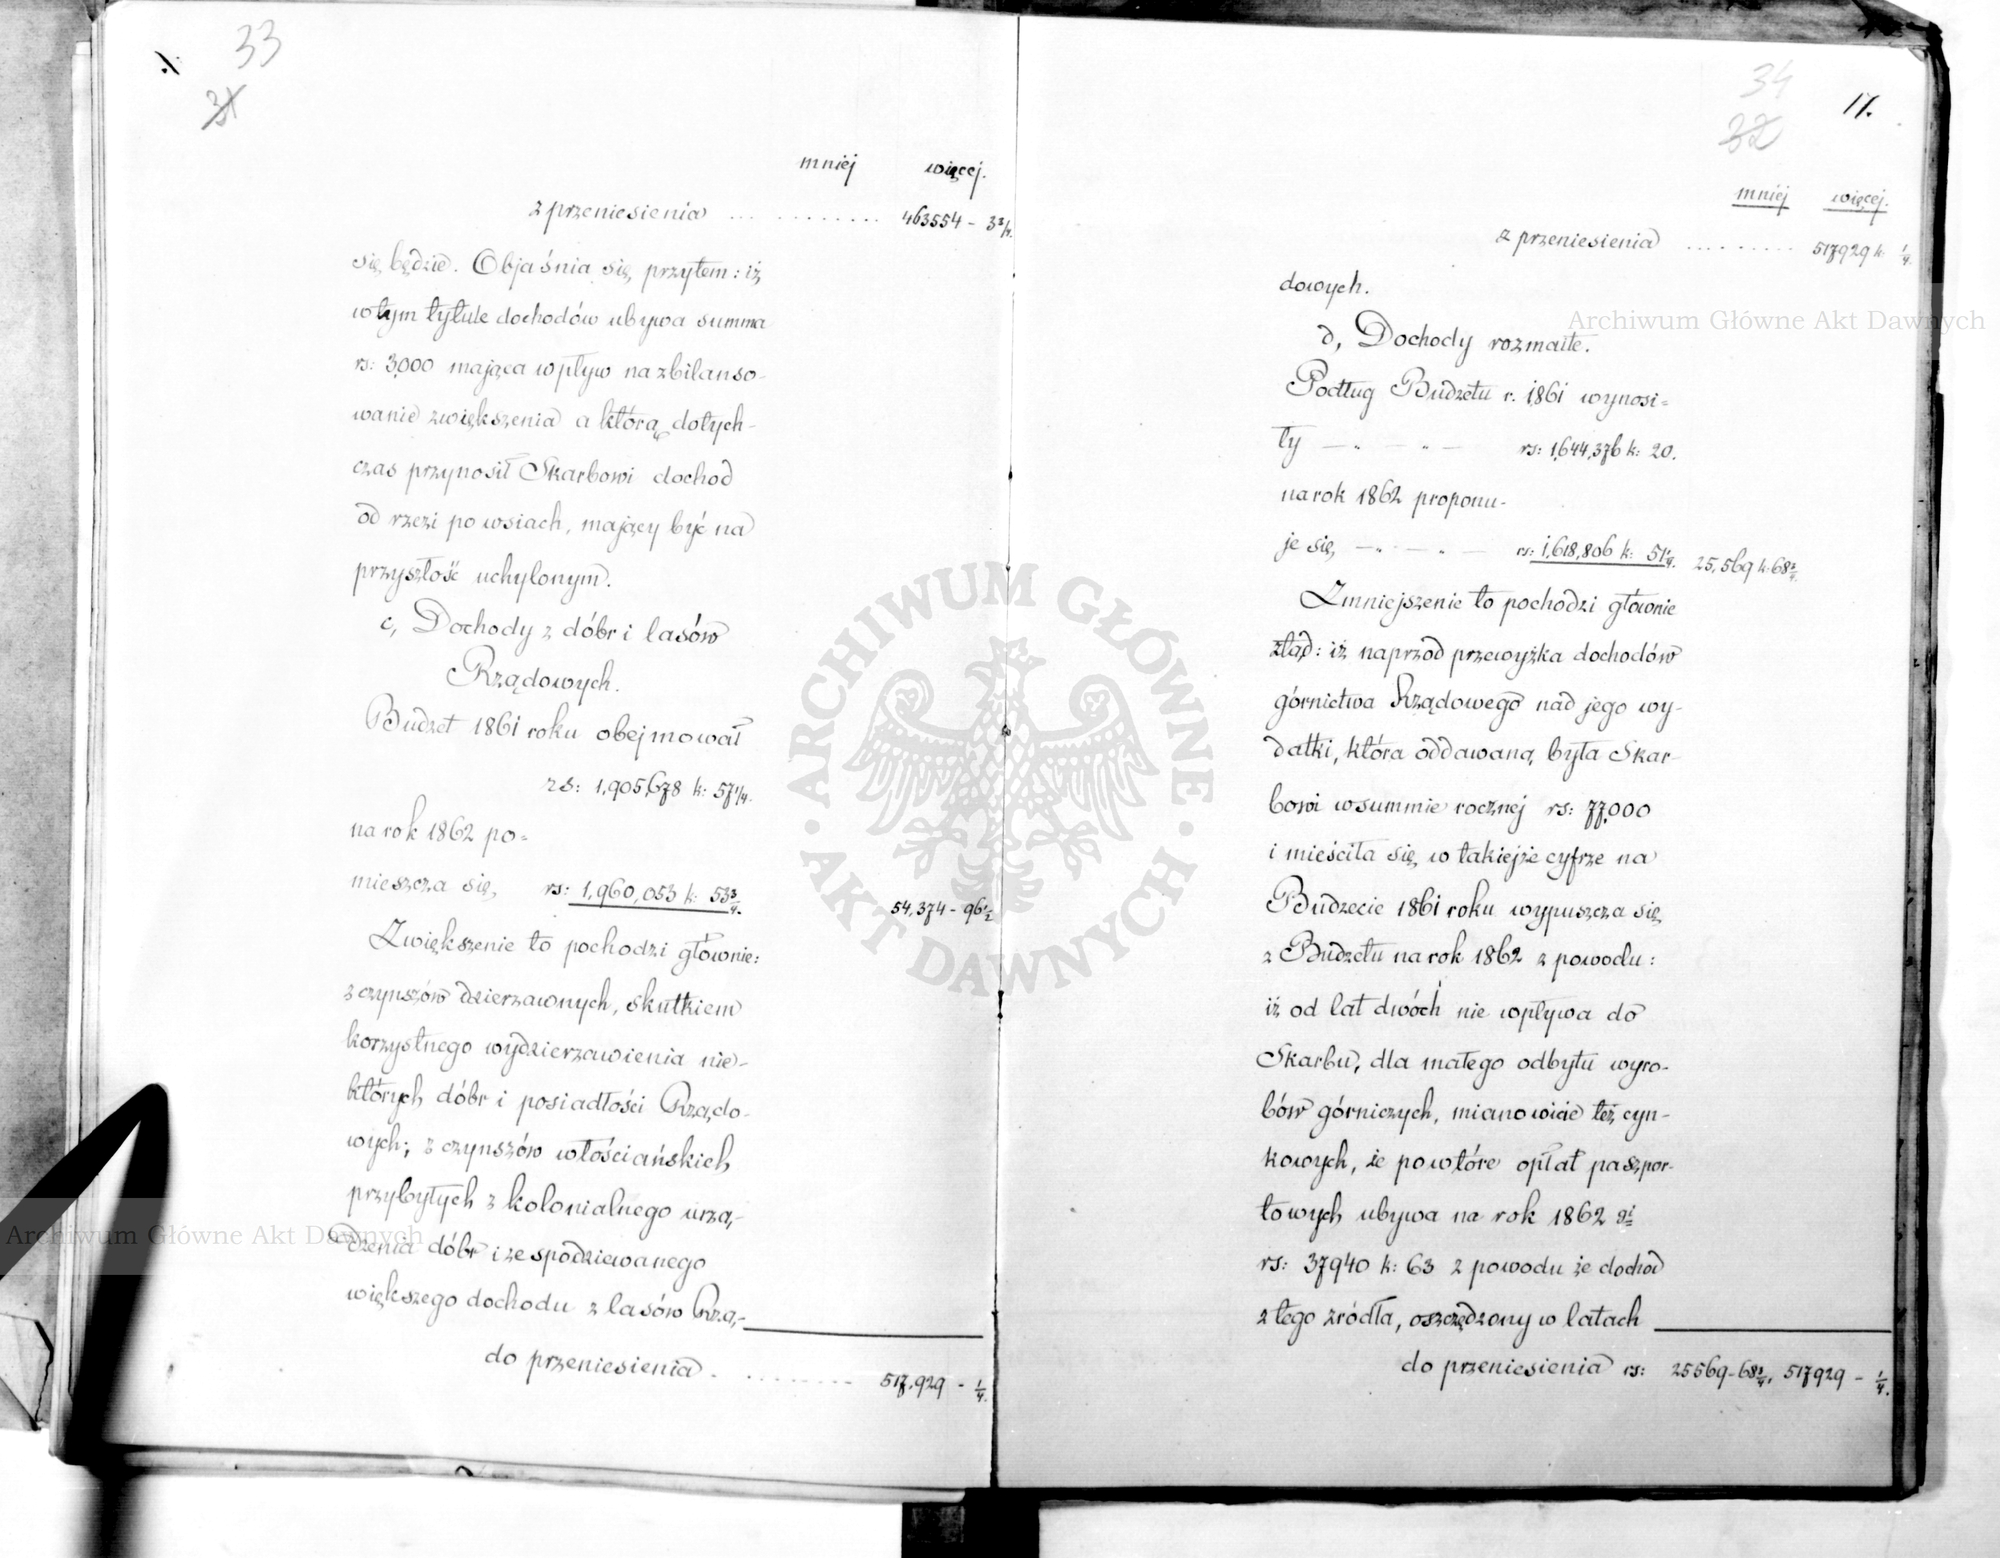 33
31
mniej więcej.
z przeniesienia . . . . . . . . . . . . 463554 - 3 3/4.
się będzie. Objaśnia się przytem: iż
w tym tytule dochodów ubywa summa
rs: 3,000 mająca wpływ na zbilanso-
wanie zwiększenia a którą dotych-
czas przynosił Skarbowi dochod
od rzezi po wsiach, mający być na
przyszłość uchylonym.
c, Dochody z dóbr i lasów
Rządowych.
Budżet 1861 roku obejmował
rs: 1,905,678 k: 57 1/4.
na rok 1862 po-
mieszcza się, rs: 1,960,053 k: 53 3/4. 54,374 - 96 1/2
Zwiększenie to pochodzi głownie:
z czynszów dzierzawnych, skutkiem
korzystnego wydzierzawienia nie-
których dóbr i posiadłości Rządo-
wych; z czynszów włościańskich
przybyłych z kolonialnego urzą-
dzenia dóbr i ze spodziewanego
większego dochodu z lasów Rzą-
do przeniesienia . . . . . . . . . 517,929 - 1/4.
34
32
17.
mniej więcej.
z przeniesienia . . . . . . . . . 517929 k. 1/4.
dowych.
d, Dochody rozmaite.
Podług Budżetu r. 1861 wynosi=
ły — „ — „ — rs: 1,644,376 k: 20.
na rok 1862 proponu-
je się, — „ — „ — rs: 1,618,806 k: 51 1/4. 25,569 k: 68 3/4.
Zmniejszenie to pochodzi głownie
ztąd: iż naprzod przewyżka dochodów
górnictwa Rządowego nad jego wy-
datki, która oddawaną była Skar-
bowi w summie rocznej rs: 77,000
i mieściła się w takiejże cyfrze na
Budżecie 1861 roku wypuszcza się
z Budżetu na rok 1862 z powodu:
iż od lat dwóch nie wpływa do
Skarbu, dla małego odbytu wyro-
bów górniczych, mianowicie też cyn-
kowych, że powtóre opłat paszpor-
towych ubywa na rok 1862
rs: 37940 k: 63 z powodu że dochod
z tego zródła, oszczędzony w latach
do przeniesienia rs: 25569-68 3/4. 517929 - 1/4.
Archiwum Główne Akt Dawnych
Archiwum Główne Akt Dawnych
ARCHIWUM GŁÓWNE · AKT DAWNYCH ·